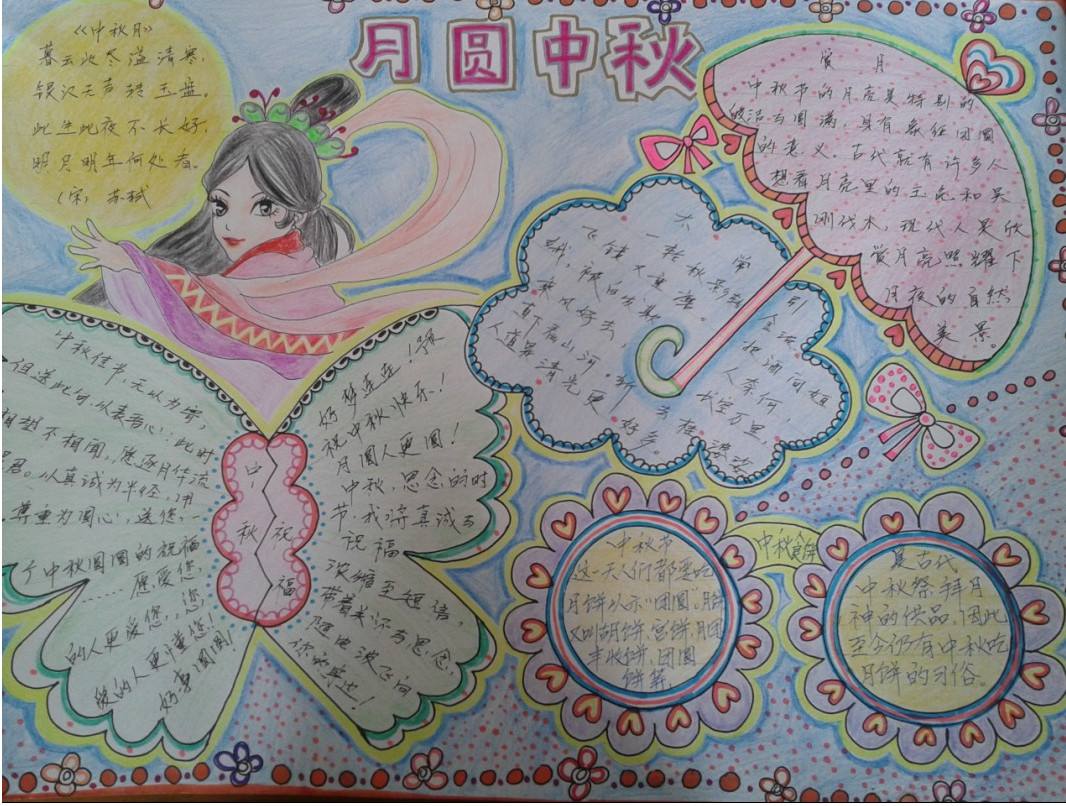 月圆中秋
《中秋月》
暮云收尽溢清寒，
银汉无声转玉盘。
此生此夜不长好，
明月明年何处看。
（宋）苏轼
赏月
中秋节的月亮是特别的
皎洁与圆满，具有象征团圆
的意义。古代就有许多人
想看月亮里的玉兔和吴
刚伐木，现代人是欣
赏月亮照耀下
月夜的自然
美景。
一轮秋影
飞镜又重磨。
把酒问姮
被白发
人奈何
乘风好去，
长空万里，
直下看山河。斫
去桂
婆娑
人道是
清光更
好梦连连！
祝中秋快乐！
月圆人更圆！
中秋，思念的时
节，我将真诚与
祝福
浓缩至短信，
带着关怀与思念，
随电波飞向
你的身边！
中秋佳节，无以为寄，
但送此句，以表吾心：此时
相望不相闻，愿逐月华流
君。以真诚为半径，用
尊重为圆心，送您
个中秋圆圆的祝福
……愿爱您
的人更爱您，您
爱的人更懂您！
好事圆圆！
中秋
祝福
中秋食俗
中秋节
这一天人们都要吃
月饼以示“团圆”。月饼
又叫胡饼、宫饼、月团
丰收饼、团圆
饼等
是古代
中秋祭拜月
神的供品，因此
至今仍有中秋吃
月饼的习俗。